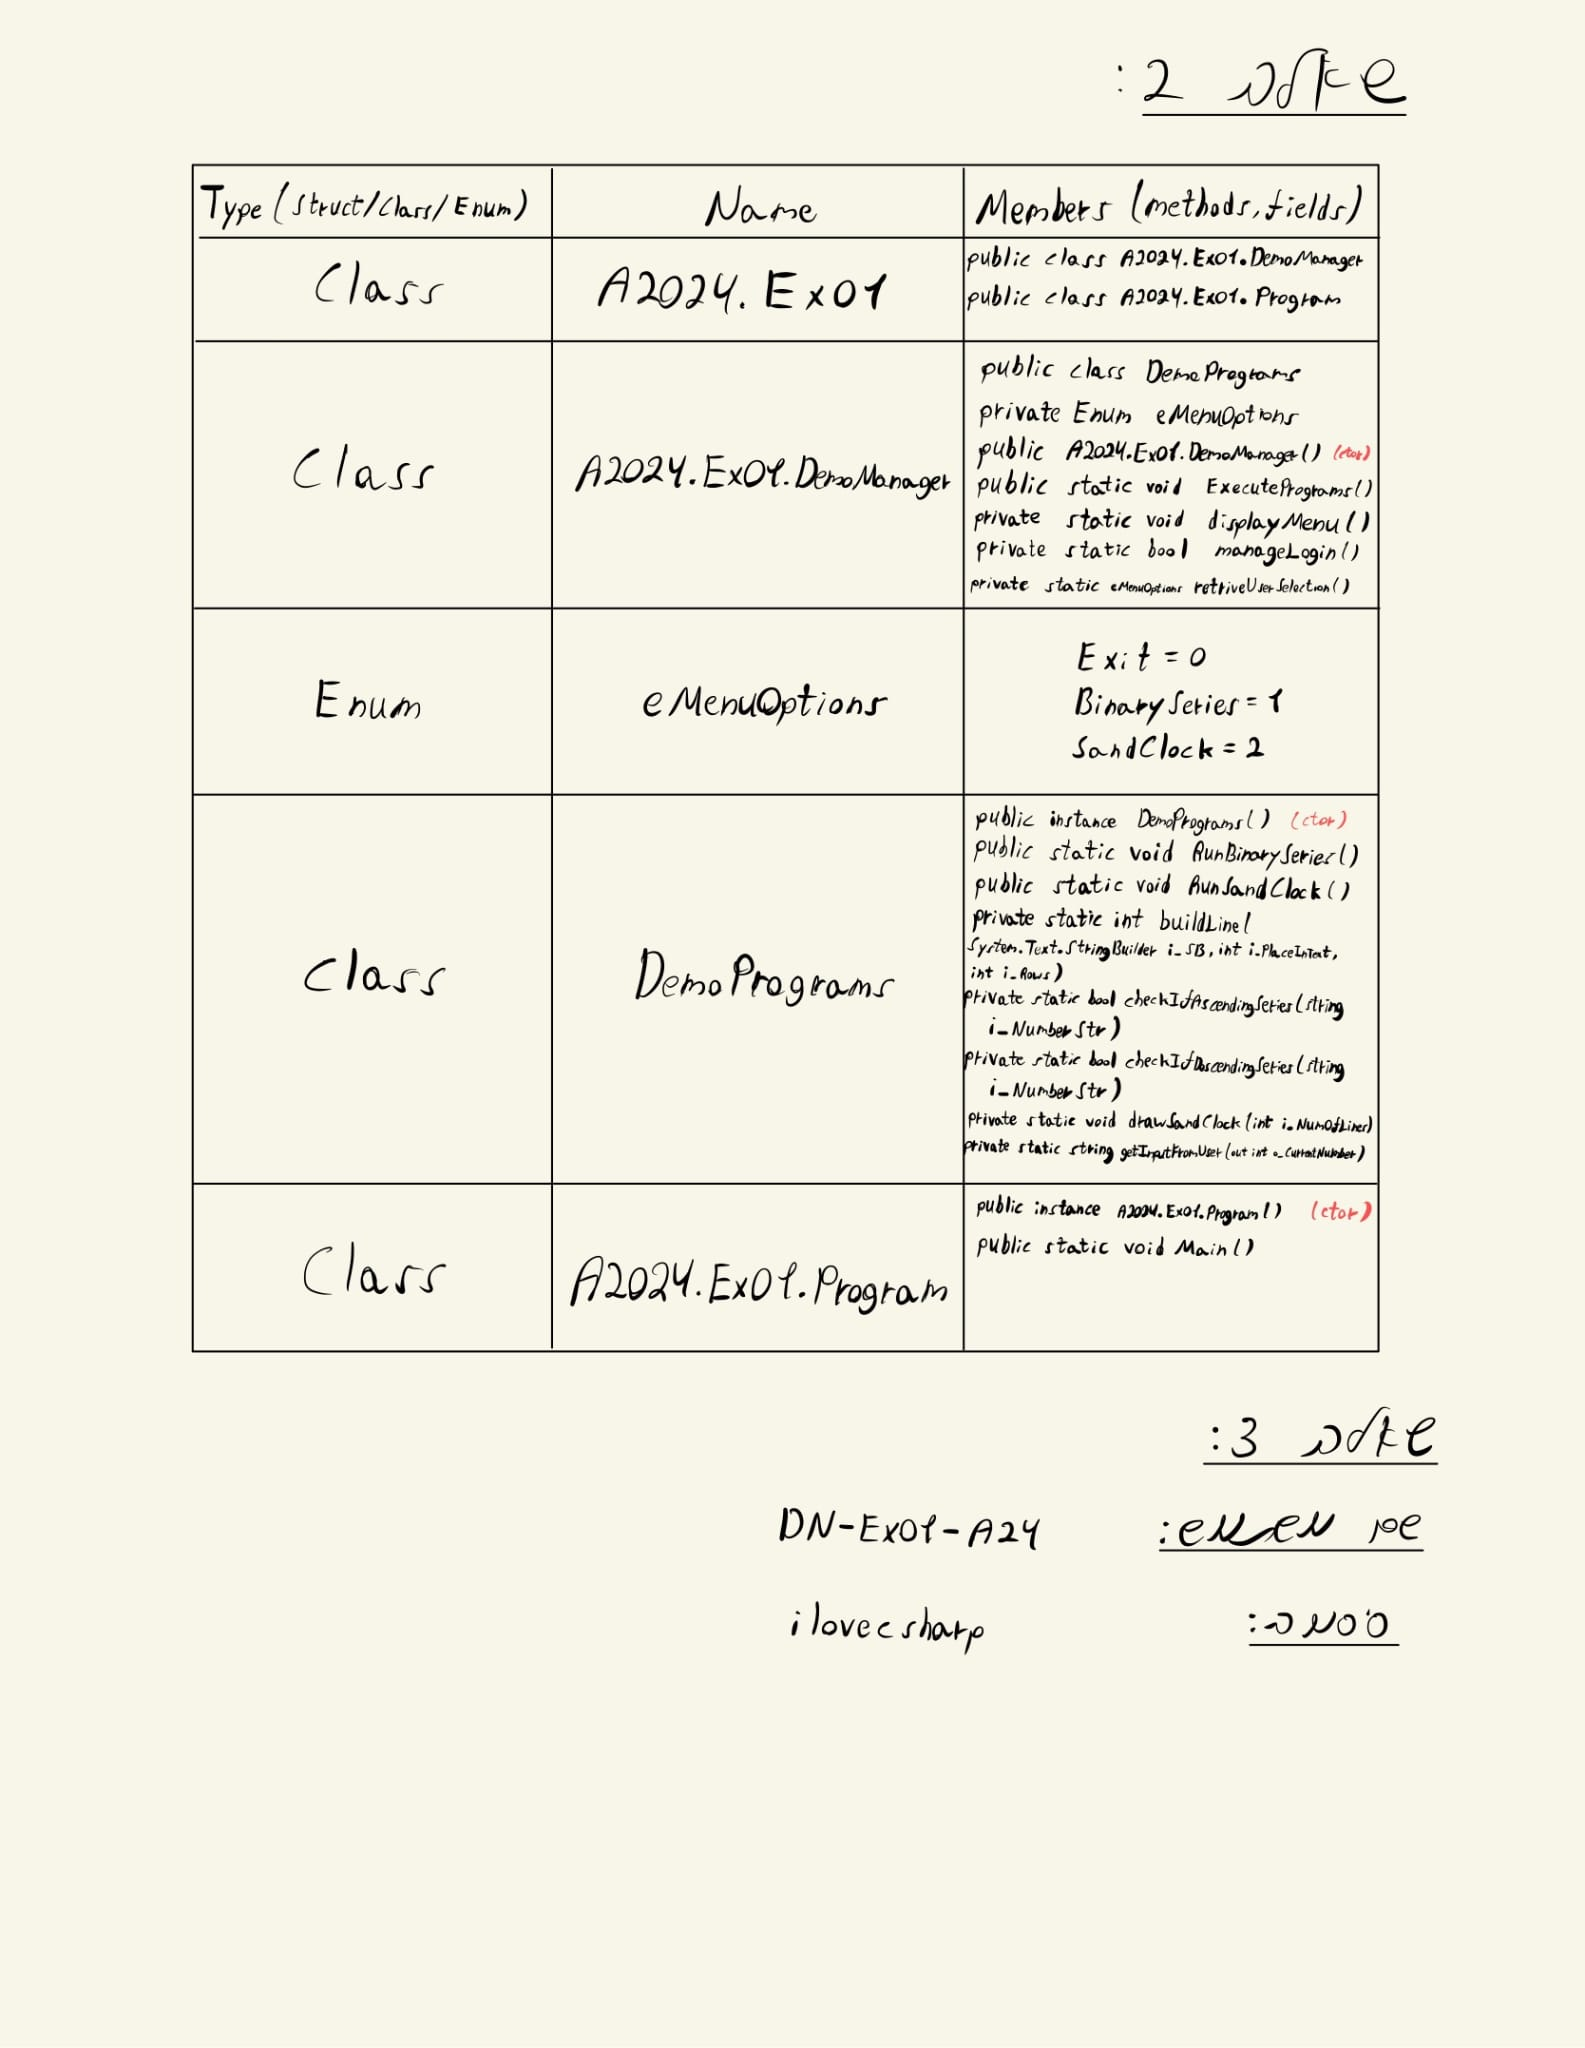 שאלה 2:
Type (Struct/Class/Enum) Name Members (methods, fields)
Class A2024.Ex01
public class A2024.Ex01.DemoManager
public class A2024.Ex01.Program
Class A2024.Ex01.DemoManager
public class DemoPrograms
private Enum eMenuOptions
public A2024.Ex01.DemoManager() (ctor)
public static void ExecutePrograms()
private static void displayMenu()
private static bool manageLogin()
private static eMenuOptions retriveUserSelection()
Enum eMenuOptions
Exit = 0
BinarySeries = 1
SandClock = 2
Class DemoPrograms
public instance DemoPrograms() (ctor)
public static void RunBinarySeries()
public static void RunSandClock()
private static int buildLine(
System.Text.StringBuilder i_SB, int i_PlaceInText,
int i_Rows)
private static bool checkIfAscendingSeries(string
i_NumberStr)
private static bool checkIfDescendingSeries(string
i_NumberStr)
private static void drawSandClock(int i_NumOfLines)
private static string getInputFromUser(out int o_CurrentNumber)
Class A2024.Ex01.Program
public instance A2024.Ex01.Program() (ctor)
public static void Main()
שאלה 3:
שם משתמש: DN-Ex01-A24
סיסמה: ilovecsharp